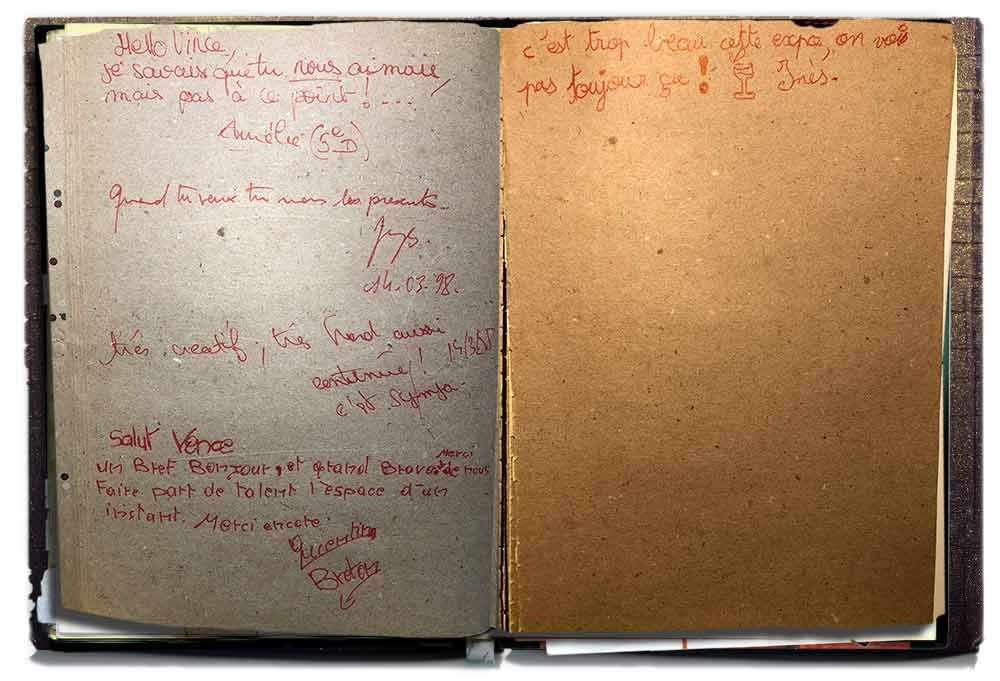 Hello Vince,
je savais que tu nous aimais,
mais pas à ce point ! ....
Amélie (5e D)
Quand tu veux tu nous les presents.
14.03.98.
très creatif, très Nord aussi
continue !
c'est Sympa.
Salut Vince
un Bref Bonjour, et grand Bravo Merci de nous
Faire part de talent l'espace d'un
instant. Merci encore
Quentin
Breton
c'est trop beau cette expo, on voi
pas toujour ça ! Inès.